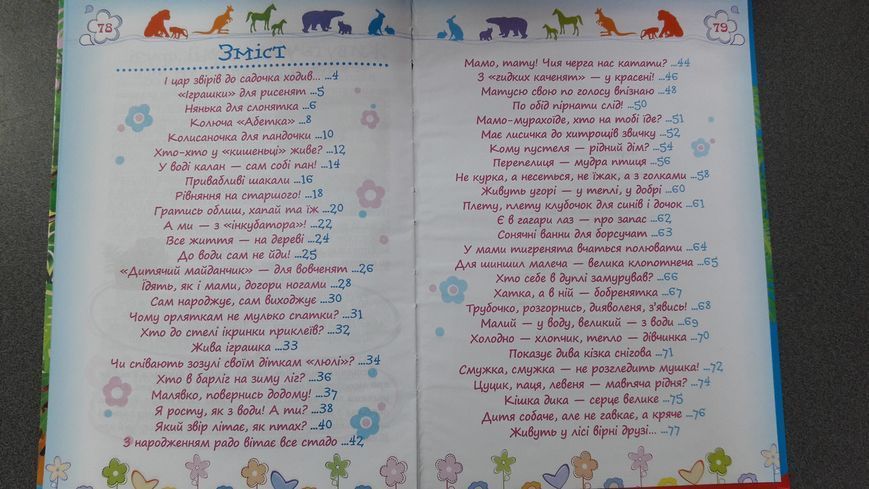 78
Зміст
І цар звірів до садочка ходив... ...4
«Іграшки» для рисенят ...5
Нянька для слонятка ...6
Колюча «Абетка» ...8
Колисаночка для пандочки ...10
Хто-хто у «кишеньці» живе? ...12
У воді калан — сам собі пан! ...14
Привабливі шакали ...16
Рівняння на старшого! ...18
Гратись облиш, хапай та їж ...20
А ми — з «інкубатора»! ...22
Все життя — на дереві ...24
До води сам не йди! ...25
«Дитячий майданчик» — для вовченят ...26
Їдять, як і мами, догори ногами ...28
Сам народжує, сам виходжує ...30
Чому орляткам не мулько спатки? ...31
Хто до стелі ікринки приклеїв? ...32
Жива іграшка ...33
Чи співають зозулі своїм діткам «люлі»? ...34
Хто в барліг на зиму ліг? ...36
Малявко, повернись додому! ...37
Я росту, як з води! А ти? ...38
Який звір літає, як птах? ...40
З народженням радо вітає все стадо ...42
79
Мамо, тату! Чия черга нас катати? ...44
З «гидких каченят» — у красені! ...46
Матусю свою по голосу впізнаю ...48
По обід пірнати слід! ...50
Мамо-мурахоїде, хто на тобі їде? ...51
Має лисичка до хитрощів звичку ...52
Кому пустеля — рідний дім? ...54
Перепелиця — мудра птиця ...56
Не курка, а несеться, не їжак, а з голками ...58
Живуть угорі — у теплі, у добрі ...60
Плету, плету клубочок для синів і дочок ...61
Є в гагари лаз — про запас ...62
Сонячні ванни для борсучат ...63
У мами тигренята вчаться полювати ...64
Для шиншил малеча — велика клопотнеча ...65
Хто себе в дуплі замурував? ...66
Хатка, а в ній — бобренятка ...67
Трубочко, розгорнись, дияволеня, з'явись! ...68
Малий — у воду, великий — з води ...69
Холодно — хлопчик, тепло — дівчинка ...70
Показує дива кізка снігова ...71
Смужка, смужка — не розгледить мушка! ...72
Цуцик, паця, левеня — мавпяча рідня? ...74
Кішка дика — серце велике ...75
Дитя собаче, але не гавкає, а кряче ...76
Живуть у лісі вірні друзі... ...77